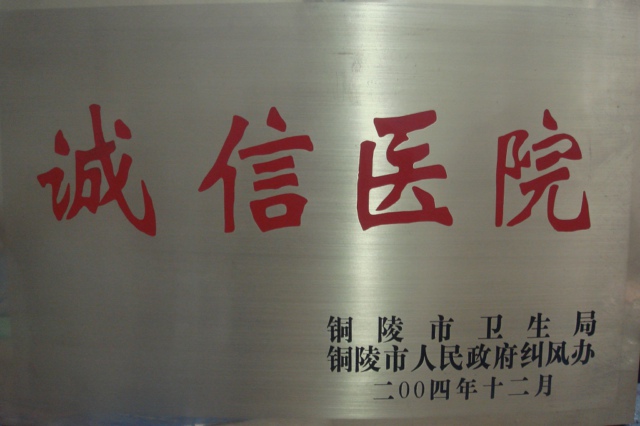 诚信医院
铜陵市卫生局
铜陵市人民政府纠风办
二00四年十二月